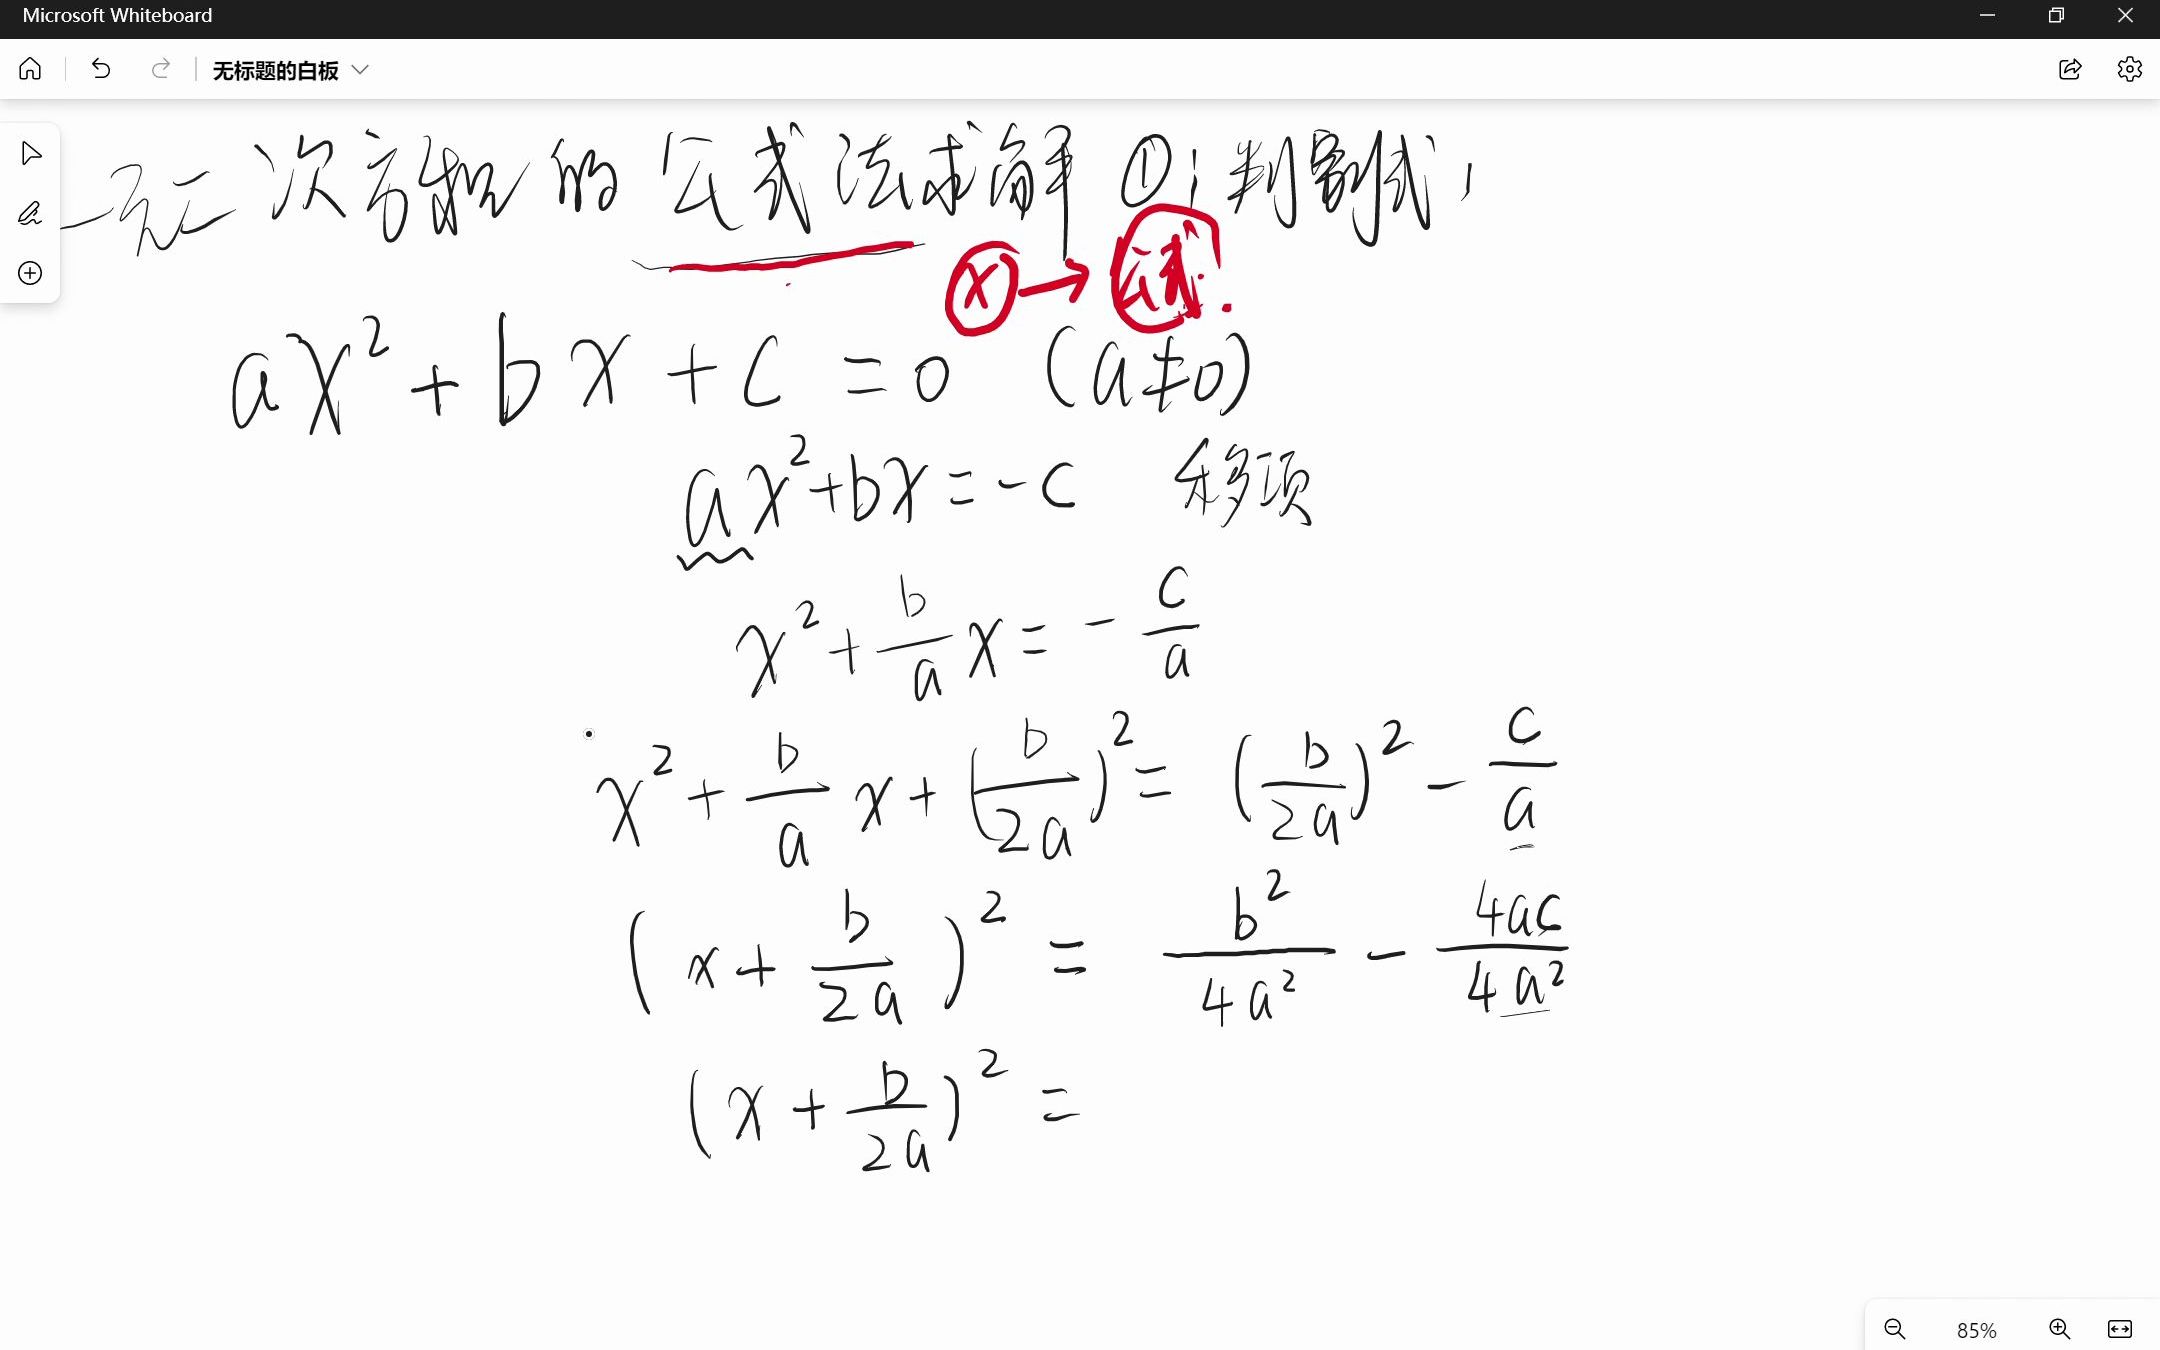 Microsoft Whiteboard
无标题的白板
一元二次方程的公式法求解①:判别式,
x → 公式.
ax²+bx+c=0 (a≠0)
ax²+bx=-c 移项
x²+b/a x=-c/a
x²+b/a x+(b/2a)²=(b/2a)²-c/a
(x+b/2a)²=b²/4a²-4ac/4a²
(x+b/2a)²=
85%